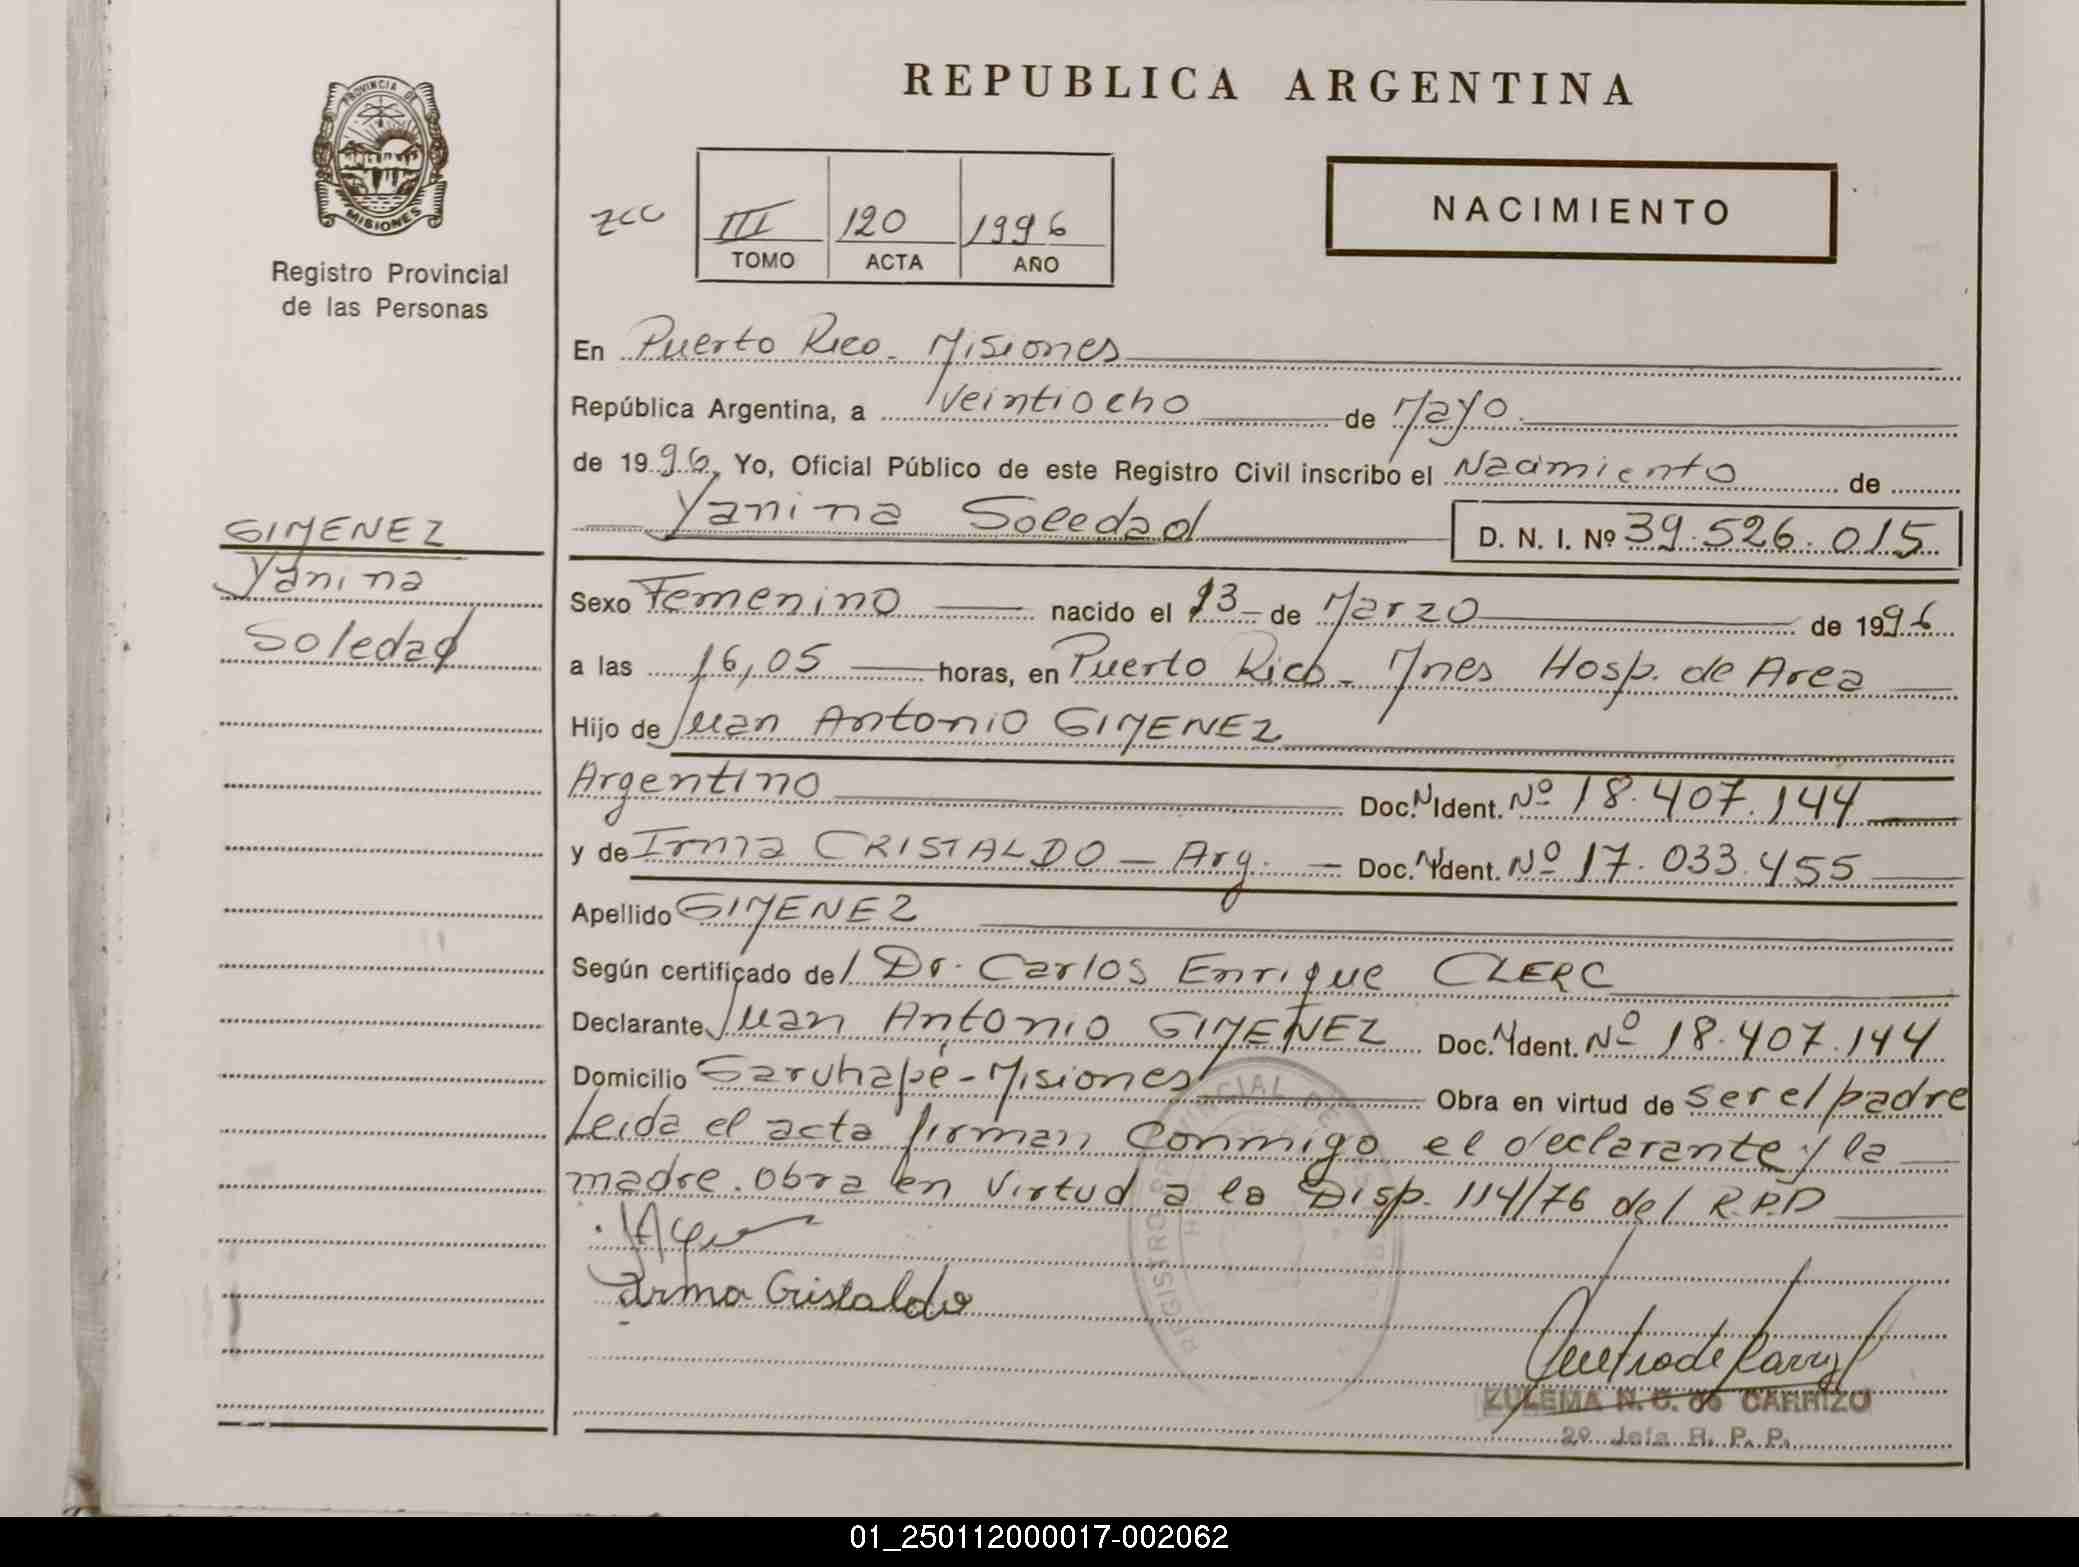 REPUBLICA ARGENTINA
PROVINCIA DE
MISIONES
Registro Provincial
de las Personas
zcc
III 120 1996
TOMO ACTA AÑO
NACIMIENTO
En Puerto Rico - Misiones
República Argentina, a Veintiocho de Mayo
de 1996, Yo, Oficial Público de este Registro Civil inscribo el Nacimiento de
Yanina Soledad D. N. I. Nº 39.526.015
GIMENEZ
Yanina
Soledad
Sexo Femenino nacido el 13 de Marzo de 1996
a las 16,05 horas, en Puerto Rico - Mnes Hosp. de Area
Hijo de Juan Antonio GIMENEZ
Argentino Doc. N Ident. Nº 18.407.144
y de Irma CRISTALDO - Arg. - Doc. N Ident. Nº 17.033.455
Apellido GIMENEZ
Según certificado del Dr. Carlos Enrique CLERC
Declarante Juan Antonio GIMENEZ Doc. N Ident. Nº 18.407.144
Domicilio Garuhapé - Misiones Obra en virtud de ser el padre
Leida el acta firman conmigo el declarante y la
madre. Obra en virtud a la Disp. 114/76 del R.P.P
Irma Cristaldo
ZULEMA N. C. de CARRIZO
2º Jefa R. P. P.
01_250112000017-002062